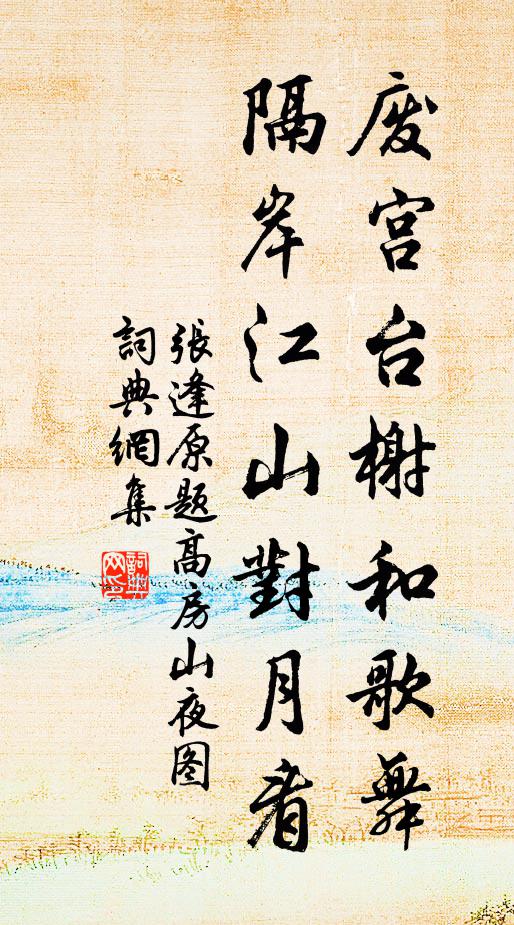 废宫台榭和歌舞
隔岸江山對月看
張逢原题高房山夜图
詞典網集